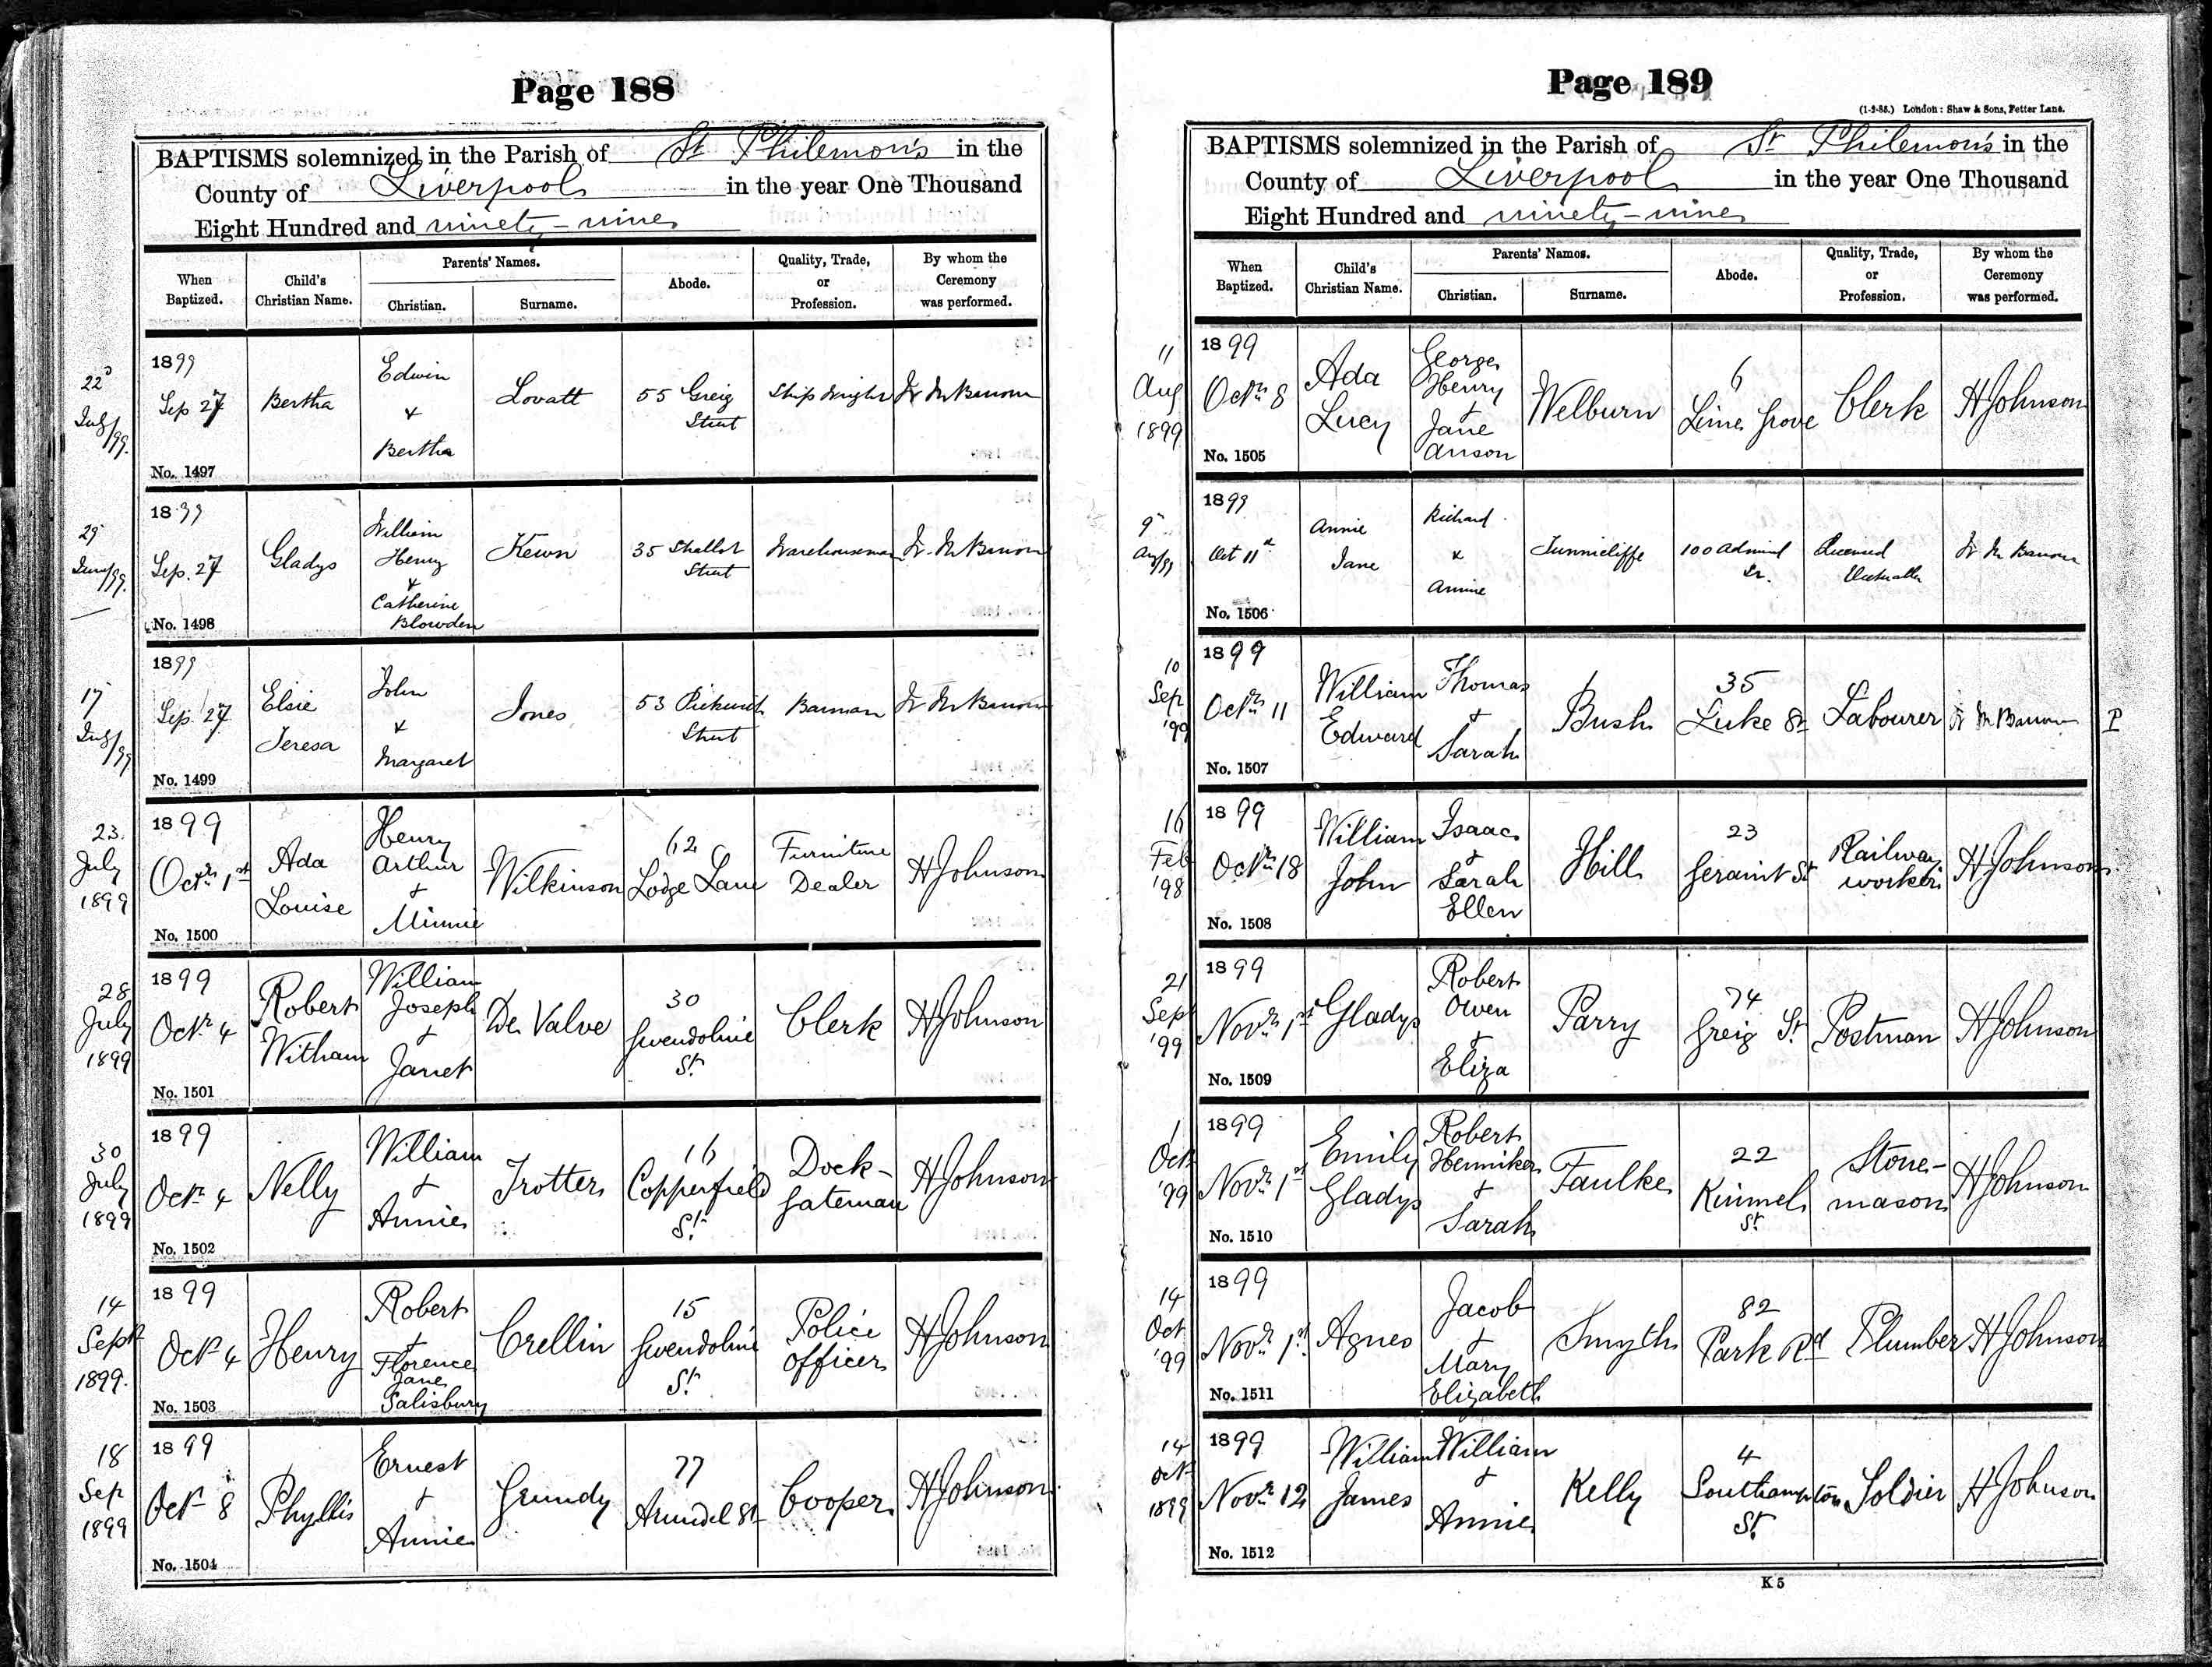 Page 188
BAPTISMS solemnized in the Parish of St Philemon's in the
County of Liverpool in the year One Thousand
Eight Hundred and ninety-nine
When Baptized.
Child's Christian Name.
Parents' Names.
Christian.
Surname.
Abode.
Quality, Trade, or Profession.
By whom the Ceremony was performed.
22d
July/99.
1899
Sep 27
No. 1497
Bertha
Edwin
&
Bertha
Lovatt
55 Greig
Street
Ship Wright
29
June/99.
1899
Sep. 27
No. 1498
Gladys
William
Henry
&
Catherine
Blowden
Kewn
35 Shallot
Street
Warehouseman
17
July/99
1899
Sep. 27
No. 1499
Elsie
Teresa
John
&
Margaret
Jones
53 Pickwick
Street
Barman
23.
July
1899
1899
Octr 1st
No. 1500
Ada
Louise
Henry
Arthur
+
Minnie
Wilkinson
62
Lodge Lane
Furniture
Dealer
H Johnson
28
July
1899
1899
Octr 4
No. 1501
Robert
Witham
William
Joseph
+
Janet
De Valve
30
Gwendoline
St.
Clerk
H Johnson
30
July
1899
1899
Octr 4
No. 1502
Nelly
William
+
Annie
Trotter
16
Copperfield
St.
Dock-
gateman
H Johnson
14
Sept
1899.
1899
Oct 4
No. 1503
Henry
Robert
+
Florence
Jane
Salisbury
Crellin
15
Gwendoline
St.
Police
Officer
H Johnson
18
Sep
1899
1899
Oct 8
No. 1504
Phyllis
Ernest
+
Annie
Grundy
77
Arundel St
Cooper
H Johnson
Page 189
(1-9-85.) London: Shaw & Sons, Fetter Lane.
BAPTISMS solemnized in the Parish of St Philemon's in the
County of Liverpool in the year One Thousand
Eight Hundred and ninety-nine
When Baptized.
Child's Christian Name.
Parents' Names.
Christian.
Surname.
Abode.
Quality, Trade, or Profession.
By whom the Ceremony was performed.
11
Aug
1899
1899
Octr 8
No. 1505
Ada
Lucy
George
Henry
+
Jane
Anson
Welburn
6
Lime Grove
Clerk
H Johnson
9
Aug/99
1899
Oct 11
No. 1506
Annie
Jane
Richard
&
Annie
Tunnicliffe
100 Admiral
St.
Licensed
Victualler
10
Sep
'99
1899
Octr 11
No. 1507
William
Edward
Thomas
+
Sarah
Bush
35
Luke St
Labourer
P
16
Feb
'98
1899
Octr 18
No. 1508
William
John
Isaac
+
Sarah
Ellen
Hill
23
Geraint St
Railway
worker
H Johnson
21
Sep
'99
1899
Novr 1st
No. 1509
Gladys
Robert
Owen
+
Eliza
Parry
74
Greig St
Postman
H Johnson
1
Oct
'99
1899
Novr 1st
No. 1510
Emily
Gladys
Robert
Henniker
+
Sarah
Faulke
22
Kinmel
St.
Stone-
mason
H Johnson
14
Oct
'99
1899
Novr 1st
No. 1511
Agnes
Jacob
+
Mary
Elizabeth
Smyth
82
Park Rd
Plumber
H Johnson
14
Oct
1899
1899
Novr 12
No. 1512
William
James
William
+
Annie
Kelly
4
Southampton
St.
Soldier
H Johnson
K 5